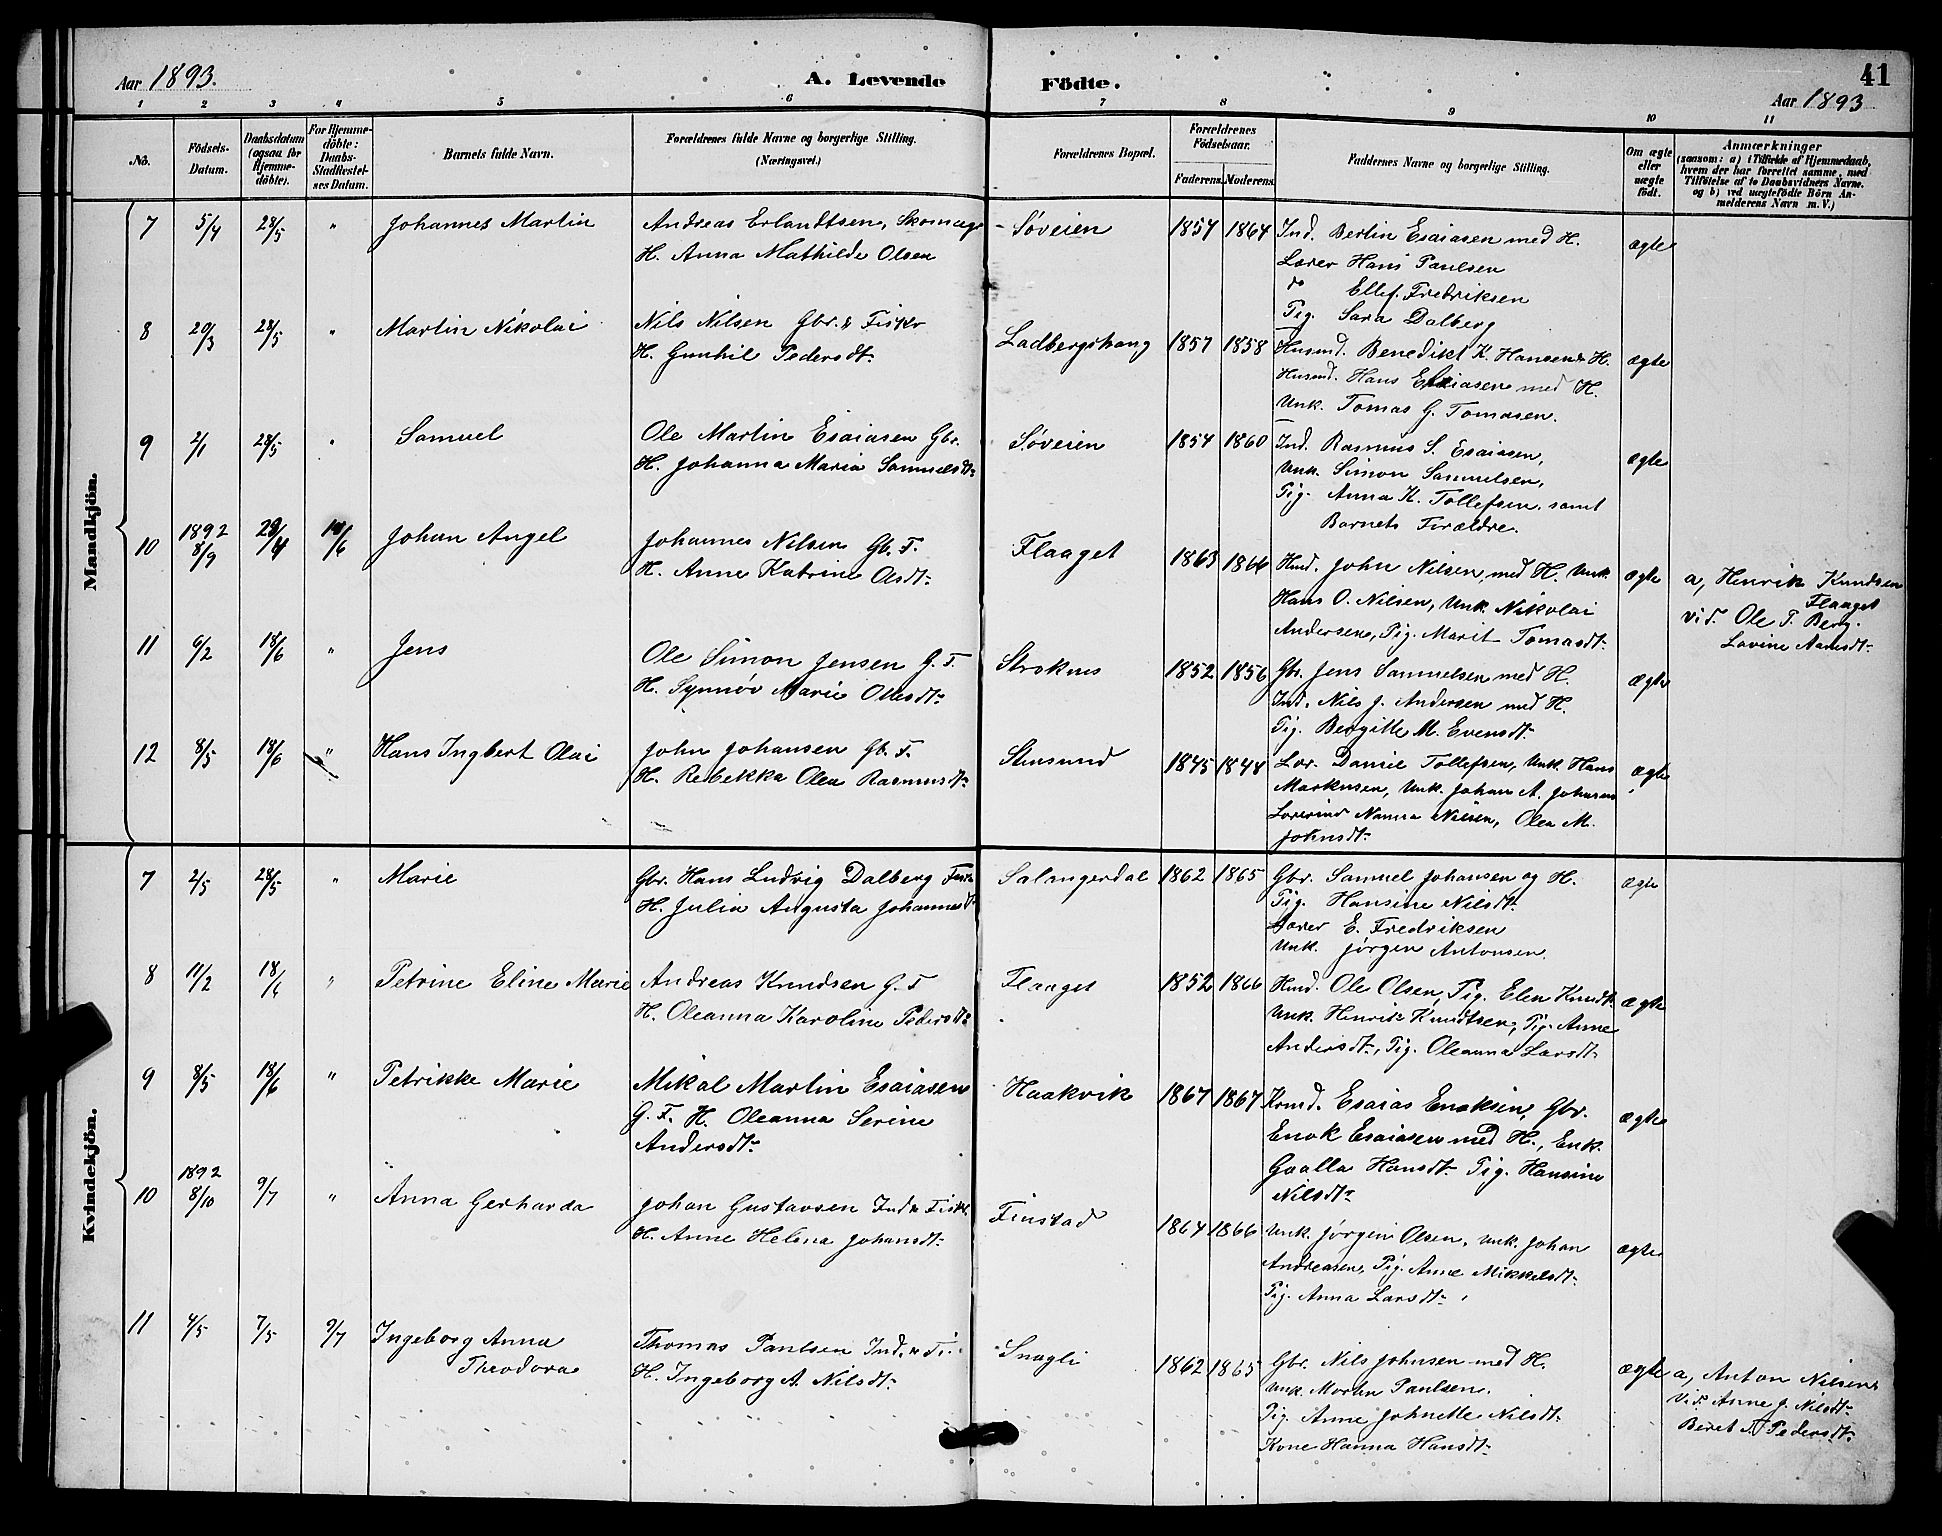 Aar 1893.
A. Levende
Födte.
41
Aar 1893
1 2 3 4 5 6 7 8 9 10 11
No.
Födsels-Datum.
Daabsdatum (ogsaa for Hjemme-döbte).
For Hjemme-döbte: Daabs-Stadfæstel-ses Datum.
Barnets fulde Navn.
Forældrenes fulde Navne og borgerlige Stilling.
(Næringsvei.)
Forældrenes Bopæl.
Forældrenes Födselsaar.
Faderens. Moderens.
Faddernes Navne og borgerlige Stilling.
Om ægte eller uægte födt.
Anmærkninger
(saasom: a) i Tilfælde af Hjemmedaab, hvem der har forrettet samme, med Tilföielse af to Daabsvidners Navne, og b) ved uægtefödte Börn An-melderens Navn m. V.)
Mandkjön.
7 5/4 28/5 " Johannes Martin
Andreas Erlandtsen, Skomager
H. Anna Mathilde Olsen
Søveien 1854 1864
Ind. Berlin Esaiasen med H.
Lærer Hans Paulsen
do Ellef. Fredriksen
Pig. Sara Dalberg
ægte
8 20/3 28/5 " Martin Nikolai
Nils Nilsen Gbr. & Fisker
H. Gunhil Pedersdt.
Ladbergstrang 1857 1858
Husmd. Benedikt K. Hansen & H.
Husmd. Hans Esaiasen med H.
Unk. Tomas G. Tomasen.
ægte
9 2/1 28/5 " Samuel
Ole Martin Esaiasen Gbr.
H. Johanna Maria Samuelsdt.
Søveien 1854 1860
Ind. Rasmus S. Esaiasen,
Unk. Simon Samuelsen,
Pig. Anna K. Tollefsen, samt
Barnets Forældre.
ægte
10 1892 8/9 29/4 18/6 Johan Angel
Johannes Nilsen Gb. F.
H. Anne Katrine Olsdt.
Flaaget 1863 1866
Hmd. John Nilsen med H. Unk.
Hans O. Nilsen, Unk. Nikolai
Andersen, Pig. Marit Tomasdt.
ægte
a, Henrik Knudsen
Flaaget
vid. Ole P. Berg.
Lovine Aamsdt.
11 6/2 18/6 " Jens
Ole Simon Jensen G. F.
H. Synnøv Marie Ollesdt.
Stroknes 1852 1856
Gbr. Jens Samuelsen med H.
Ind. Nils J. Andersen med H.
Pig. Bergitte M. Evensdt.
ægte
12 8/5 18/6 " Hans Ingbert Olai
John Johansen Gb. F.
H. Rebekka Olea Rasmusdt.
Stensund 1845 1844
Lær. Daniel Tollefsen, Unk. Hans
Markusen, Unk. Johan A. Johnsen
Lærerinde Nanna Nilsen, Olea M.
Johnsdt.
ægte
Kvindekjön.
7 2/5 28/5 " Marie
Gbr. Hans Ludvig Dalberg
H. Julia Augusta Johannesdt.
Salangerdal 1862 1865
Gbr. Samuel Johansen og H.
Pig. Hansine Nilsdt.
Lærer E. Fredriksen
Unk. Jørgen Antonsen.
ægte
8 11/2 18/6 " Petrine Eline Marie
Andreas Knudsen G. F
H. Oleanna Karoline Pedersdt.
Flaaget 1852 1866
Hmd. Ole Olsen, Pig. Elen Knudt.
Unk. Henrik Knudtsen, Pig. Anne
Andersdt., Pig. Oleanna Larsdt.
ægte
9 8/5 18/6 " Petrikke Marie
Mikal Martin Esaiasen
G. F. H. Oleanna Serine
Andersdt.
Haakvik 1867 1867
Kmd. Esaias Enoksen, Gbr.
Enok Esaiasen med H., Enk.
Gvalla Hansdt. Pig. Hansine
Nilsdt.
ægte
10 1892 8/10 9/7 " Anna Gerharda
Johan Gustavsen Ind. & Fisk.
H. Anne Helena Johansdt.
Finstad 1864 1866
Unk. Jørgen Olsen, Unk. Johan
Andreasen, Pig. Anne Mikkelsdt.
Pig. Anna Larsdt.
ægte
11 4/5 7/5 9/7 Ingeborg Anna
Theodora
Thomas Paulsen Ind. & Fi..
H. Ingeborg A. Nilsdt.
Snogli 1862 1865
Gbr. Nils Johnsen med H.
Unk. Martin Paulsen.
Pig. Anne Johnette Nilsdt.
Kone Hanna Hansdt.
ægte
a, Anton Nilsen
vid. Anne J. Nilsdt.
Beret A Pedersdt.